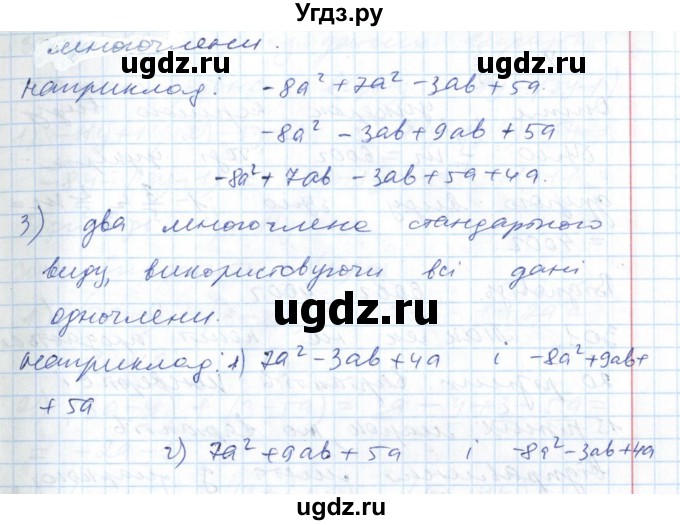 Угдз.ру
многочлени.
ugdz.ru ugdz.ru
Наприклад: -8a² + 7a² - 3ab + 5a.
-8a² - 3ab + 9ab + 5a
-8a² + 7ab - 3ab + 5a + 4a.
ugdz.ru
3) два многочлена стандартного
виду, використовуючи всі дані
ugdz.ru
одночлени.
Наприклад: 1) 7a² - 3ab + 4a і -8a² + 9ab +
ugdz.ru ugdz.ru
+ 5a
2) 7a² + 9ab + 5a і -8a² - 3ab + 4a
ugdz.ru